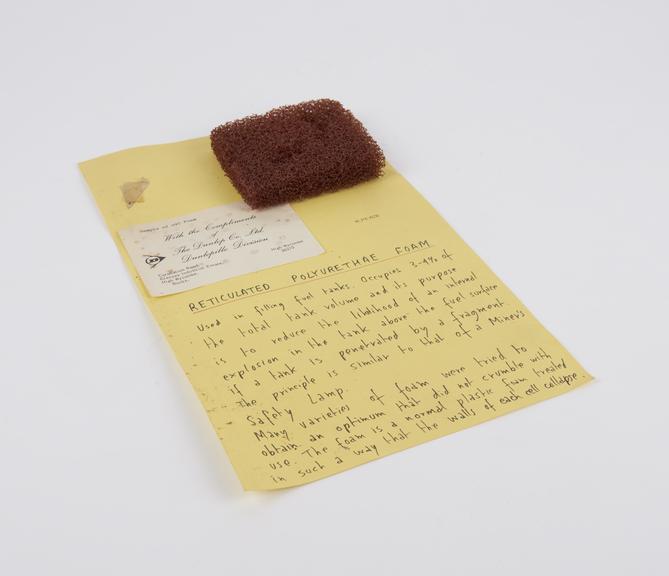 Sample of
Foam
With the Compliments
of
The Dunlop Co. Ltd.
Dunlopillo Division
High Wycombe
Bucks.
High Wycombe
RETICULATED POLYURETHAE FOAM
Used in filling fuel tanks. Occupies 3-4% of
the total tank volume and its purpose
is to reduce the liklihood of an internal
explosion in the tank above the fuel surface
if a tank is penetrated by a fragment.
The principle is similar to that of a Miner's
Safety Lamp.
Many varieties of foam were tried to
obtain an optimum that did not crumble with
use. The foam is a normal plastic foam treated
in such a way that the walls of each cell collapse.